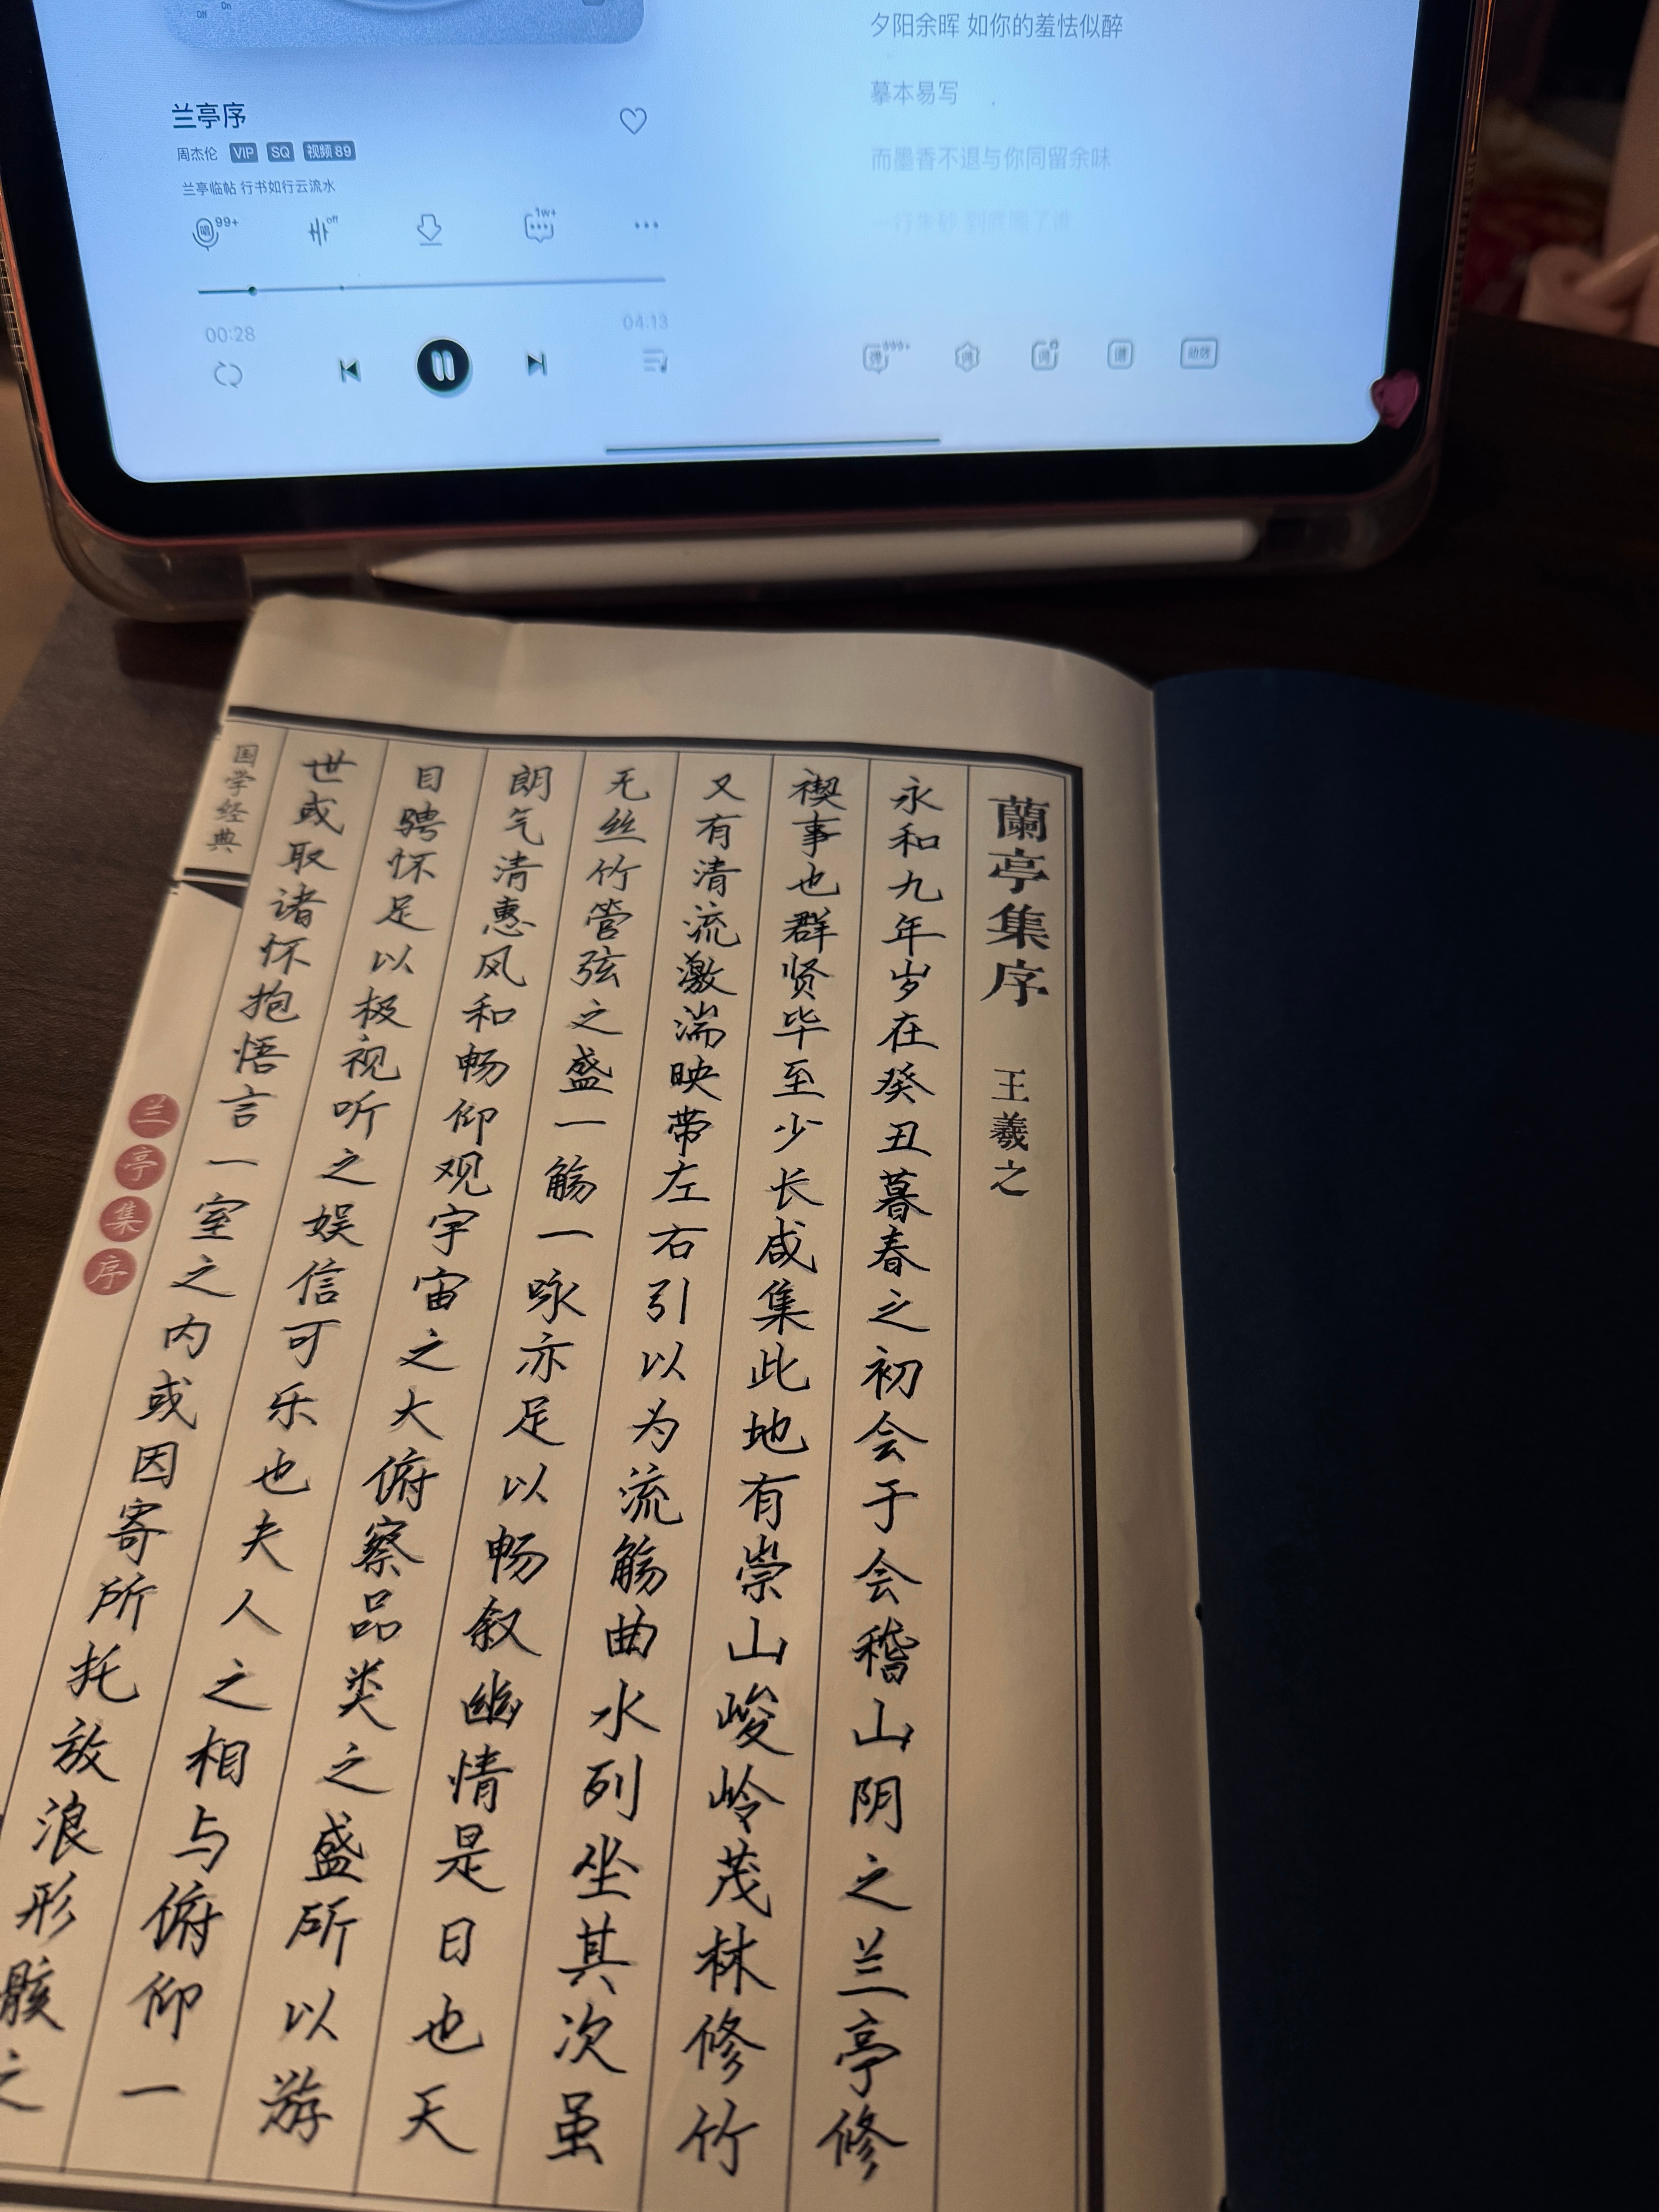 off
On
兰亭序
周杰伦 VIP SQ 视频 89
兰亭临帖 行书如行云流水
唱 99+
off
1w+
00:28
04:13
夕阳余晖 如你的羞怯似醉
摹本易写
而墨香不退与你同留余味
一行朱砂 到底圈了谁
弹 999+
词
谱
动效
蘭亭集序 王羲之
永和九年岁在癸丑暮春之初会于会稽山阴之兰亭修
禊事也群贤毕至少长咸集此地有崇山峻岭茂林修竹
又有清流激湍映带左右引以为流觞曲水列坐其次虽
无丝竹管弦之盛一觞一咏亦足以畅叙幽情是日也天
朗气清惠风和畅仰观宇宙之大俯察品类之盛所以游
目骋怀足以极视听之娱信可乐也夫人之相与俯仰一
世或取诸怀抱悟言一室之内或因寄所托放浪形骸之
国学经典
兰亭集序